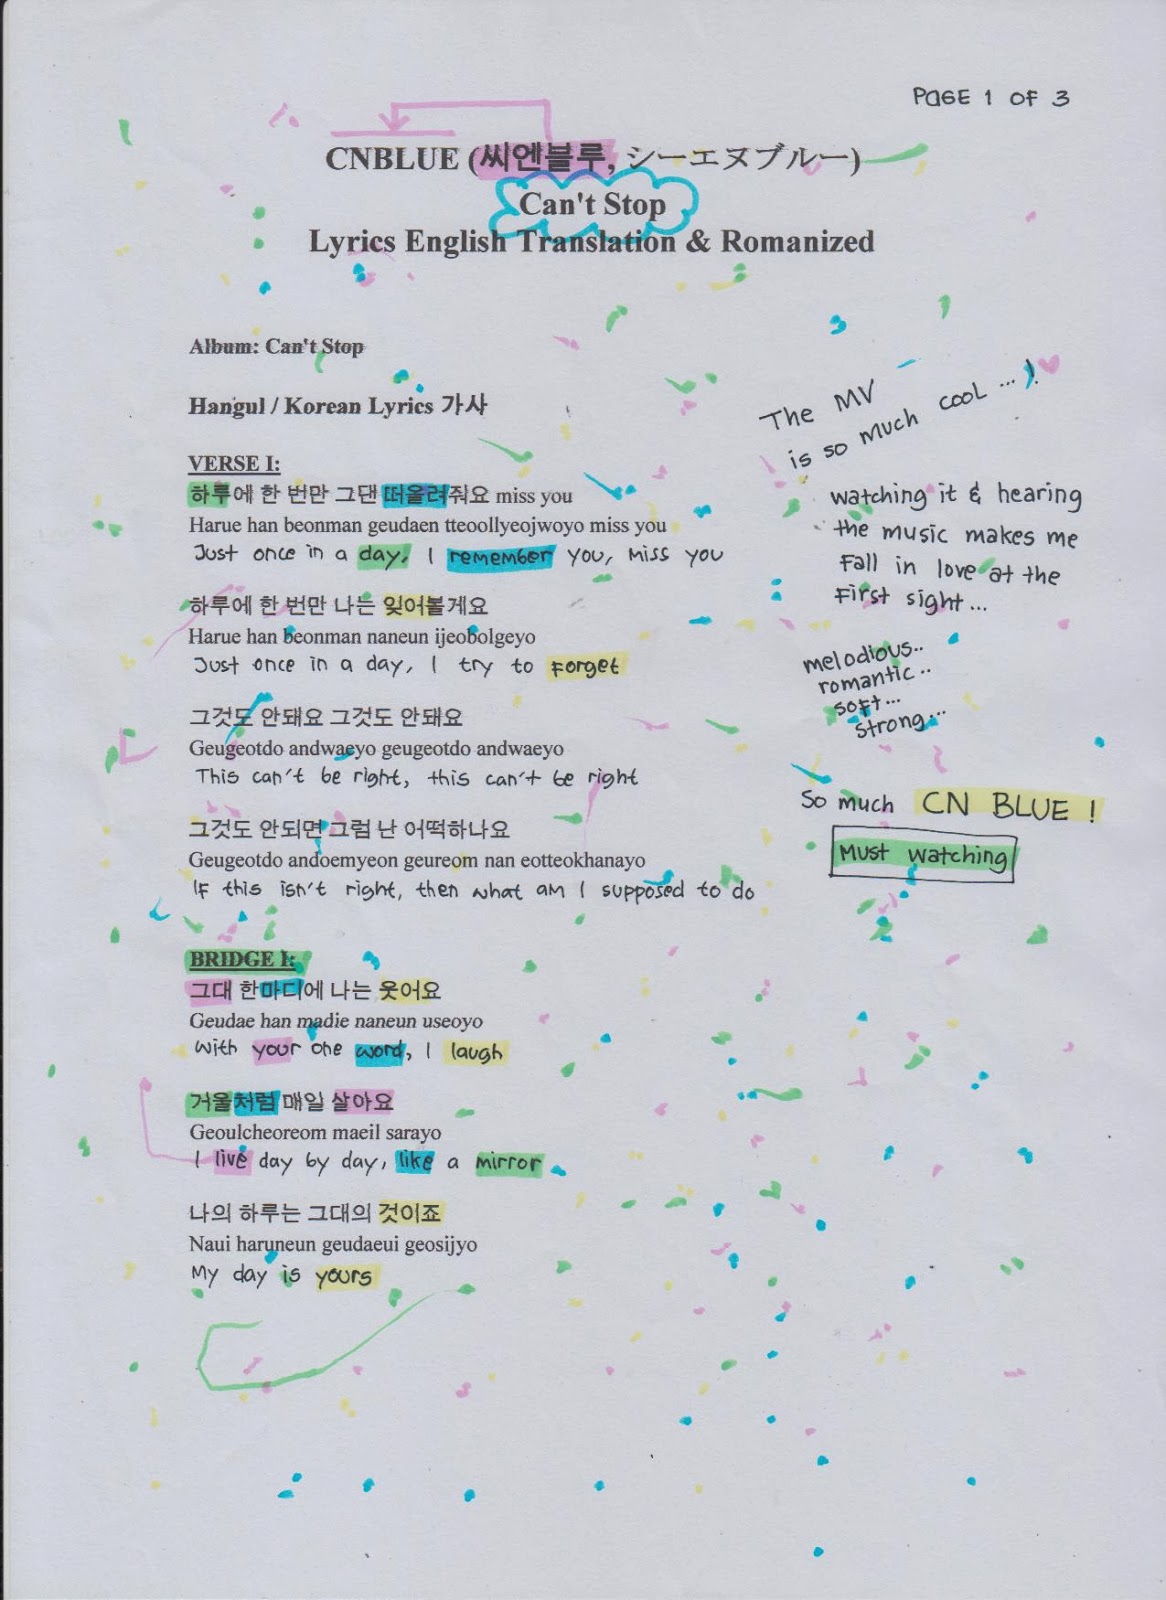 PAGE 1 OF 3
CNBLUE (씨엔블루, シーエヌブルー)
Can't Stop
Lyrics English Translation & Romanized
Album: Can't Stop
Hangul / Korean Lyrics 가사
VERSE I:
하루에 한 번만 그댄 떠올려줘요 miss you
Harue han beonman geudaen tteoollyeojwoyo miss you
Just once in a day, I remember you, miss you
하루에 한 번만 나는 잊어볼게요
Harue han beonman naneun ijeobolgeyo
Just once in a day, I try to forget
그것도 안돼요 그것도 안돼요
Geugeotdo andwaeyo geugeotdo andwaeyo
This can't be right, this can't be right
그것도 안되면 그럼 난 어떡하나요
Geugeotdo andoemyeon geureom nan eotteokhanayo
If this isn't right, then what am I supposed to do
BRIDGE I:
그대 한마디에 나는 웃어요
Geudae han madie naneun useoyo
With your one word, I laugh
거울처럼 매일 살아요
Geoulcheoreom maeil sarayo
I live day by day, like a mirror
나의 하루는 그대의 것이죠
Naui haruneun geudaeui geosijyo
My day is yours
The MV
is so much cool ... !
watching it & hearing
the music makes me
Fall in love at the
First sight...
melodious..
romantic..
soft...
strong...
So much CN BLUE !
Must watching